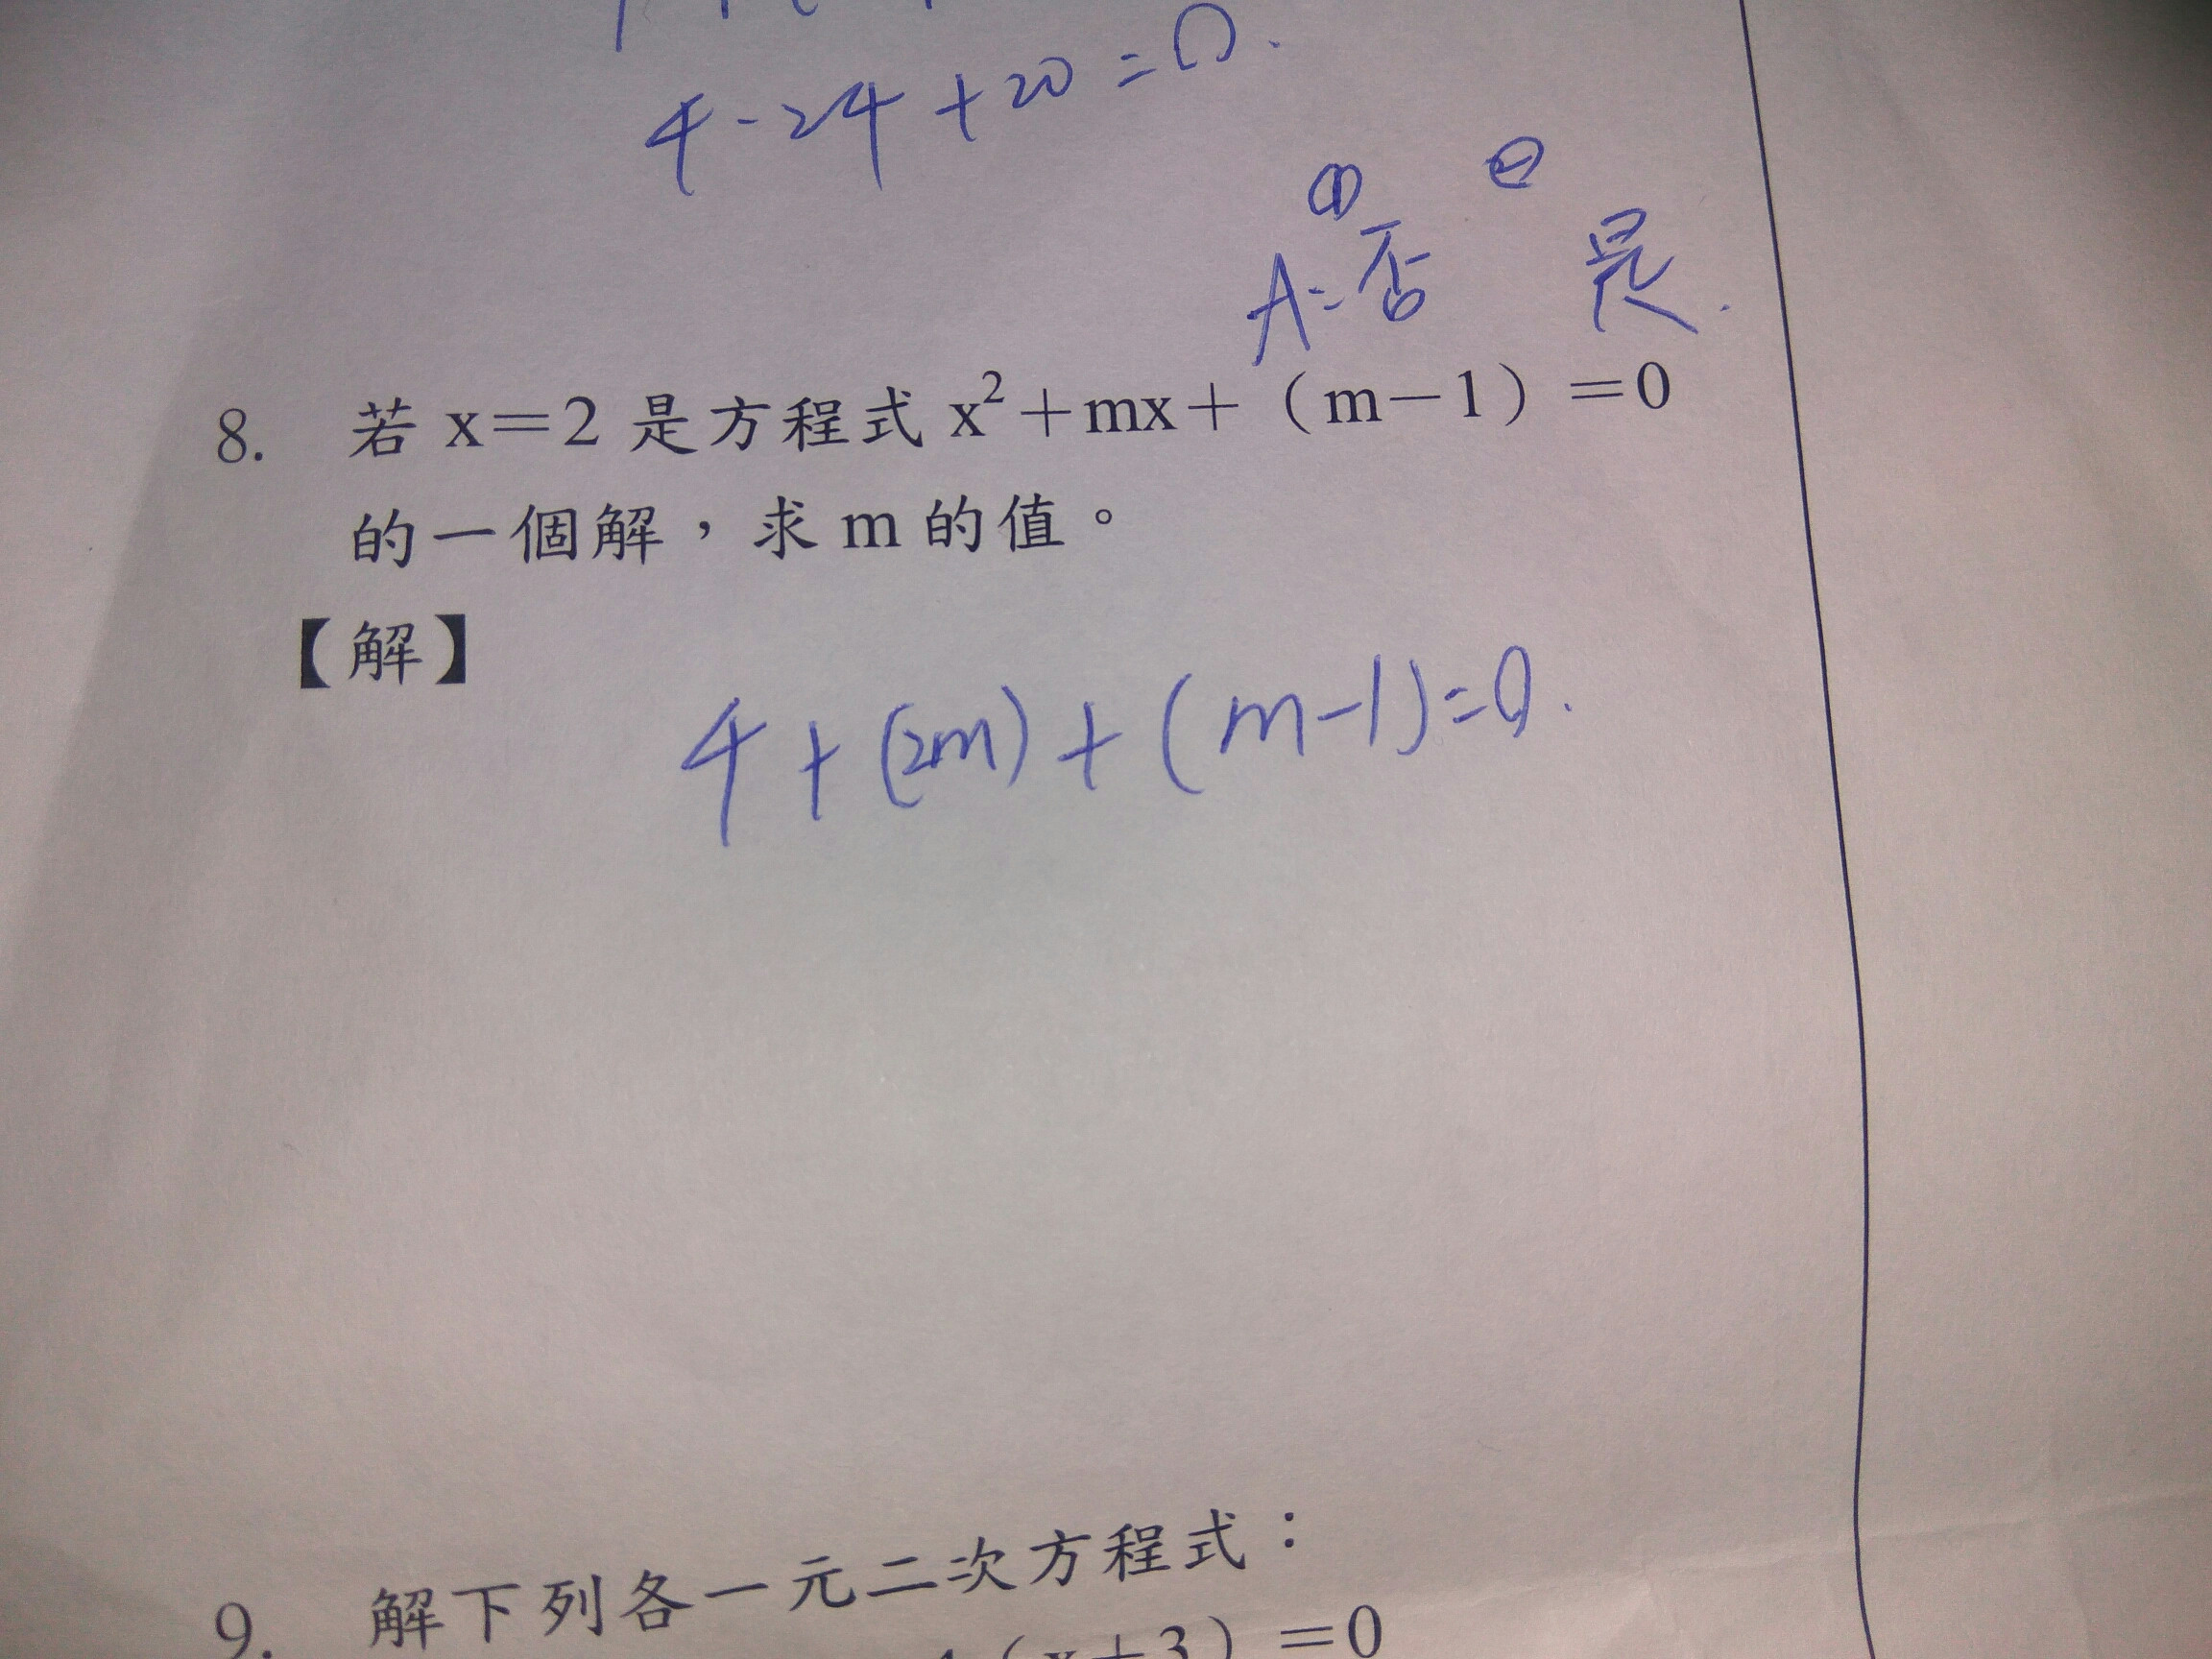 4-24+20=0.
① ②
A:否 是.
8. 若 x=2 是方程式 x²+mx+(m-1)=0
的一個解,求 m 的值。
【解】
4+(2m)+(m-1)=0.
9. 解下列各一元二次方程式:
(x+3)=0